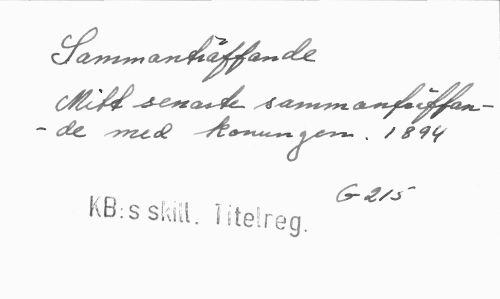 Sammanträffande
Mitt senaste sammanträffan-
-de med konungen. 1894
G 215
KB:s skill. Titelreg.